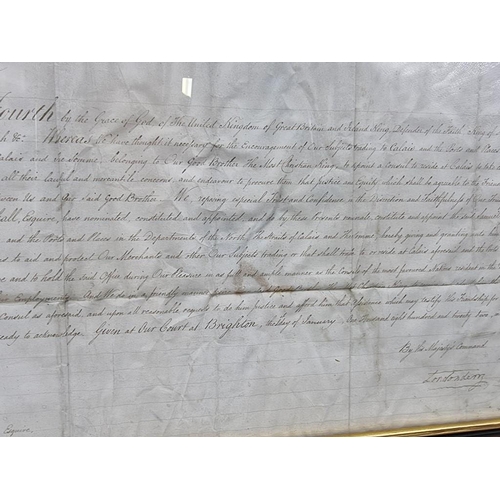 Fourth by the Grace of God of The United Kingdom of Great Britain and Ireland King, Defender of the Faith, King of
h &c. Whereas We have thought it necessary for the Encouragement of Our Subjects trading to Calais and the Ports and Places
Calais and the Somme, belonging to Our Good Brother The Most Christian King, to appoint a Consul to reside at Calais to take
all their lawful and mercantile concerns, and endeavour to procure them that justice and Equity which shall be agreeable to the
ween Us and Our said Good Brother. We reposing especial Trust and Confidence in the Discretion and Faithfulness of Our
all, Esquire, have nominated, constituted and appointed, and do by these Presents nominate, constitute and appoint the said
and the Ports and Places in the Departments of the North, the Straits of Calais and the Somme, hereby giving and granting unto him
to aid and protect Our Merchants and other Our Subjects trading or that shall trade to or reside at Calais aforesaid and the
and to hold the said Office during Our Pleasure in as full and ample manner as the Consuls of the most favoured Nation
Employment. And We do in a friendly manner
Consul as aforesaid, and upon all reasonable requests to do them Justice and afford them that Assistance which may testify the Friendship
ready to acknowledge. Given at Our Court at Brighton, the Day of January One thousand eight hundred and twenty two,
By His Majesty's Command
Londonderry
Esquire,